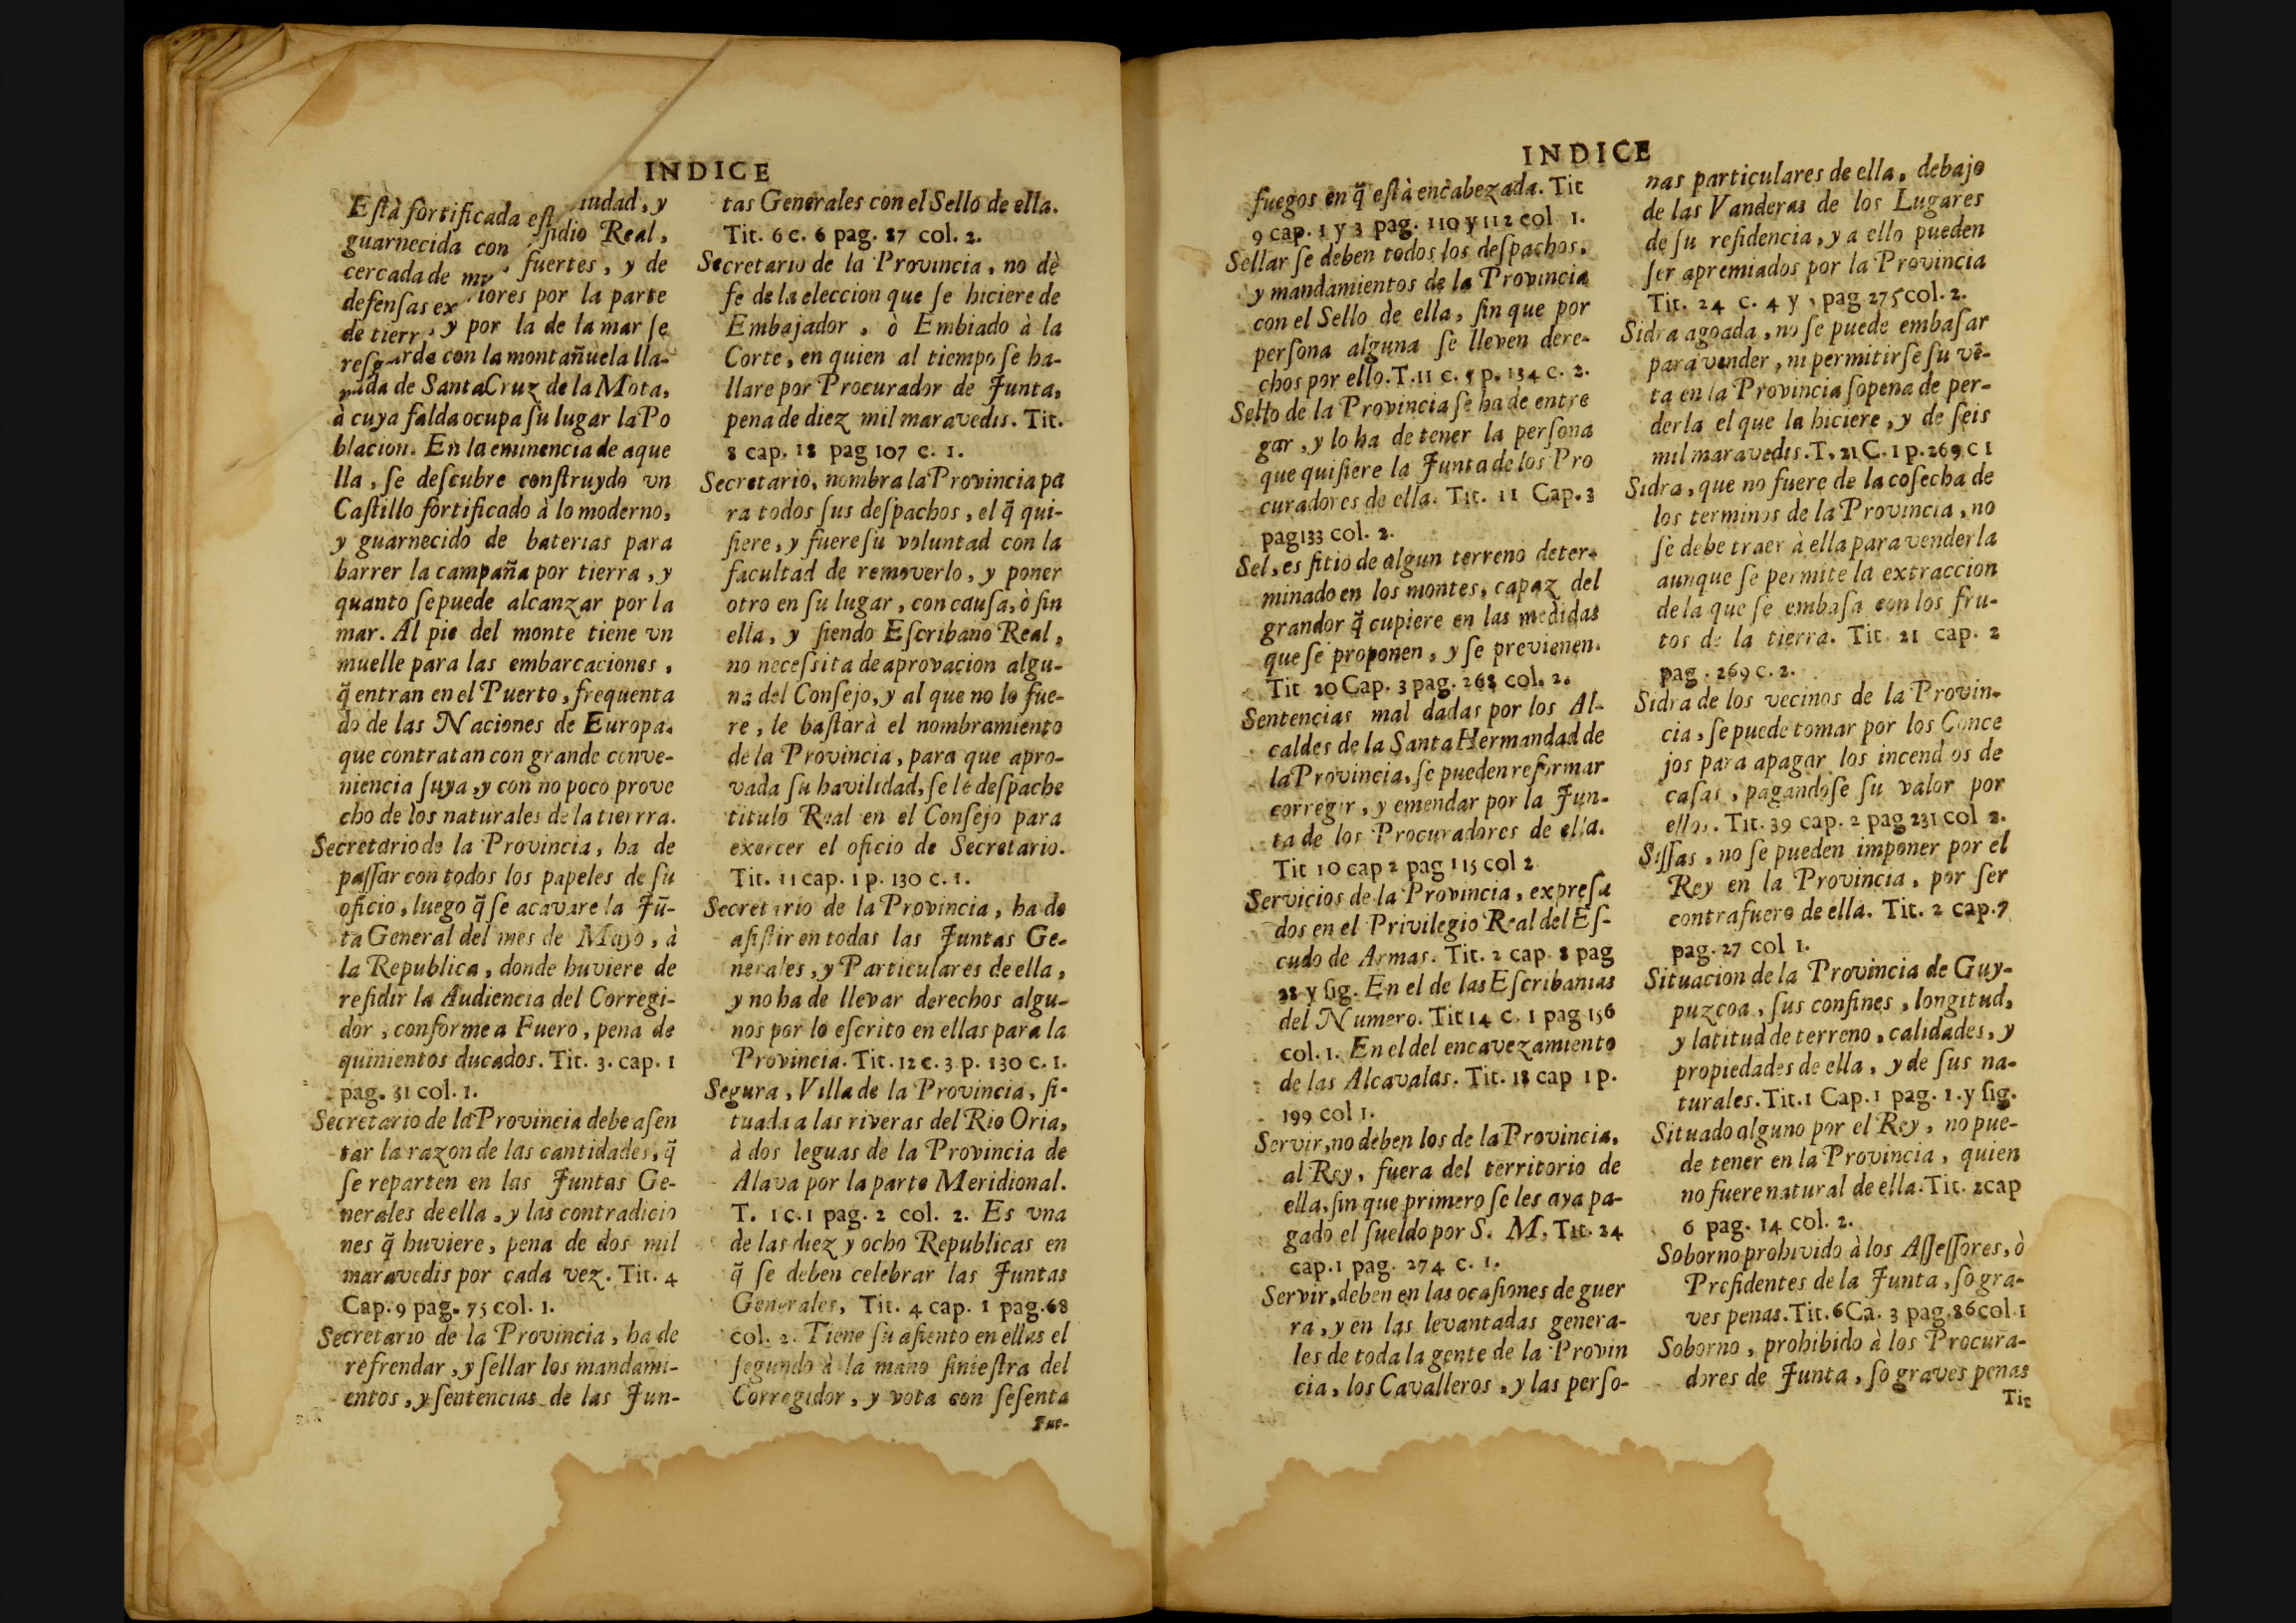 INDICE
Eſtà fortificada eſt iudad, y
guarnecida con ſidio Real,
cercada de mu fuertes, y de
defenſas ex iores por la parte
de tierr, y por la de la mar ſe
reſguarda con la montañuela lla-
mada de Santa Cruz de la Mota,
à cuya falda ocupa ſu lugar la Po
blacion. En la eminencia de aque
lla, ſe deſcubre conſtruydo vn
Caſtillo fortificado à lo moderno,
y guarnecido de baterias para
barrer la campaña por tierra, y
quanto ſe puede alcanzar por la
mar. Al pie del monte tiene vn
muelle para las embarcaciones,
q̃ entran en el Puerto, frequenta
do de las Naciones de Europa,
que contratan con grande conve-
niencia ſuya, y con no poco prove
cho de los naturales de la tierrra.
Secretario de la Provincia, ha de
paſſar con todos los papeles de ſu
oficio, luego q̃ ſe acavare la Jũ-
ta General del mes de Mayo, à
la Republica, donde huviere de
reſidir la Audiencia del Corregi-
dor, conforme a Fuero, pena de
quinientos ducados. Tit. 3. cap. 1
pag. 31 col. 1.
Secretario de la Provincia debe aſen
tar la razon de las cantidades, q̃
ſe reparten en las Juntas Ge-
nerales de ella, y las contradicio
nes q̃ huviere, pena de dos mil
maravedis por cada vez. Tit. 4
Cap. 9 pag. 75 col. 1.
Secretario de la Provincia, ha de
refrendar, y ſellar los mandami-
entos, y ſentencias de las Jun-
tas Generales con el Sello de ella.
Tit. 6 c. 6 pag. 87 col. 2.
Secretario de la Provincia, no dè
fe de la eleccion que ſe hiciere de
Embajador, ò Embiado à la
Corte, en quien al tiempo ſe ha-
llare por Procurador de Junta,
pena de diez mil maravedis. Tit.
8 cap. 18 pag 107 c. 1.
Secretario, nombra la Provincia pa
ra todos ſus deſpachos, el q̃ qui-
ſiere, y fuere ſu voluntad con la
facultad de removerlo, y poner
otro en ſu lugar, con cauſa, ò ſin
ella, y ſiendo Eſcribano Real,
no neceſsita de aprovacion algu-
na del Conſejo, y al que no lo fue-
re, le baſtarà el nombramiento
de la Provincia, para que apro-
vada ſu havilidad, ſe le deſpache
titulo Real en el Conſejo para
exercer el oficio de Secretario.
Tit. 11 cap. 1 p. 130 c. 1.
Secretario de la Provincia, ha de
aſiſtir en todas las Juntas Ge-
nerales, y Particulares de ella,
y no ha de llevar derechos algu-
nos por lo eſcrito en ellas para la
Provincia. Tit. 12 c. 3. p. 130 c. 1.
Segura, Villa de la Provincia, ſi-
tuada a las riveras del Rio Oria,
à dos leguas de la Provincia de
Alava por la parte Meridional.
T. 1 c. 1 pag. 2 col. 2. Es vna
de las diez y ocho Republicas en
q̃ ſe deben celebrar las Juntas
Generales, Tit. 4 cap. 1 pag. 68
col. 2. Tiene ſu aſiento en ellas el
ſegundo à la mano ſinieſtra del
Corregidor, y vota con ſeſenta
Fue-
INDICE
fuegos en q̃ eſtà encabezada. Tit
9 cap. 1 y 3 pag. 110 y 112 col 1.
Sellar ſe deben todos los deſpachos,
y mandamientos de la Provincia
con el Sello de ella, ſin que por
perſona alguna ſe lleven dere-
chos por ello. T. 11 c. 5 p. 134 c. 2.
Sello de la Provincia ſe ha de entre
gar, y lo ha de tener la perſona
que quiſiere la Junta de los Pro
curadores de ella. Tit. 11 Cap. 3
pag 133 col. 2.
Sel, es ſitio de algun terreno deter-
minado en los montes, capaz del
grandor q̃ cupiere en las medidas
que ſe proponen, y ſe previenen.
Tit 20 Cap. 3 pag. 268 col. 2.
Sentencias mal dadas por los Al-
caldes de la Santa Hermandad de
la Provincia, ſe pueden reformar
corregir, y emendar por la Jun-
ta de los Procuradores de ella.
Tit 10 cap 2 pag 115 col 2
Servicios de la Provincia, expreſa
dos en el Privilegio Real del Eſ-
cudo de Armas. Tit. 2 cap. 8 pag
28 y ſig. En el de las Eſcribanias
del Numero. Tit 14 c. 1 pag 156
col. 1. En el del encavezamiento
de las Alcavalas. Tit. 18 cap 1 p.
199 col 1.
Servir, no deben los de la Provincia,
al Rey, fuera del territorio de
ella, ſin que primero ſe les aya pa-
gado el ſueldo por S. M. Tit. 24
cap. 1 pag. 274 c. 1.
Servir, deben en las ocaſiones de guer
ra, y en las levantadas genera-
les de toda la gente de la Provin
cia, los Cavalleros, y las perſo-
nas particulares de ella, debajo
de las Vanderas de los Lugares
de ſu reſidencia, y a ello pueden
ſer apremiados por la Provincia
Tit. 24 c. 4 y pag 275 col. 2.
Sidra agoada, no ſe puede embaſar
para vender, ni permitirſe ſu vẽ-
ta en la Provincia ſopena de per-
derla el que la hiciere, y de ſeis
mil maravedis. T. 21 C. 1 p. 269 c 1
Sidra, que no fuere de la coſecha de
los terminos de la Provincia, no
ſe debe traer à ella para venderla
aunque ſe permite la extraccion
de la que ſe embaſa con los fru-
tos de la tierra. Tit. 21 cap. 2
pag. 269 c. 2.
Sidra de los vecinos de la Provin-
cia, ſe puede tomar por los Conce
jos para apagar los incendios de
caſas, pagandoſe ſu valor por
ellos. Tit. 39 cap. 2 pag 231 col 2.
Siſſas, no ſe pueden imponer por el
Rey en la Provincia, por ſer
contrafuero de ella. Tit. 2 cap. 7
pag. 27 col 1.
Situacion de la Provincia de Guy-
puzcoa, ſus confines, longitud,
y latitud de terreno, calidades, y
propiedades de ella, y de ſus na-
turales. Tit. 1 Cap. 1 pag. 1. y ſig.
Situado alguno por el Rey, no pue-
de tener en la Provincia, quien
no fuere natural de ella. Tit. 2 cap
6 pag. 14 col. 2.
Soborno prohivido à los Aſſeſſores, ò
Preſidentes de la Junta, ſo gra-
ves penas. Tit. 6 Ca. 3 pag. 86 col. 1
Soborno, prohibido à los Procura-
dores de Junta, ſo graves penas
Tit